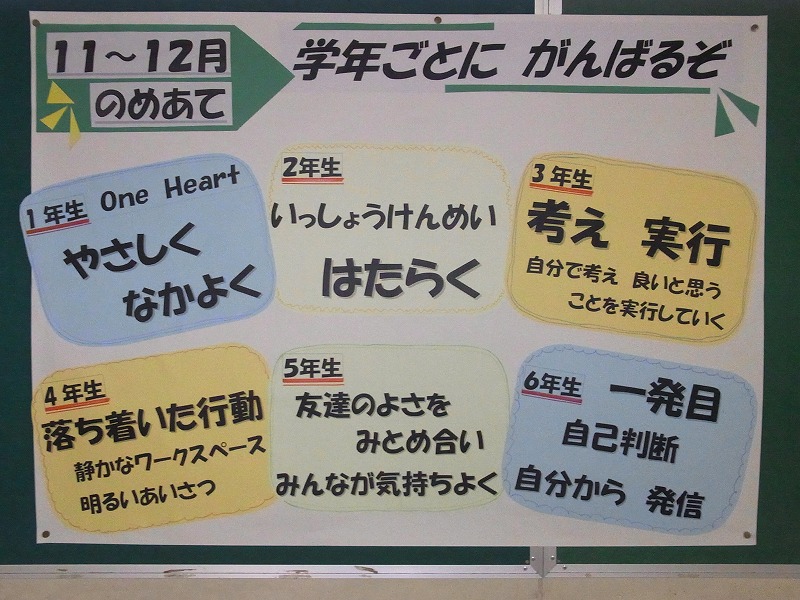 11～12月
のめあて
学年ごとに がんばるぞ
1年生 One Heart
やさしく
なかよく
2年生
いっしょうけんめい
はたらく
3年生
考え 実行
自分で考え 良いと思う
ことを実行していく
4年生
落ち着いた行動
静かなワークスペース
明るいあいさつ
5年生
友達のよさを
みとめ合い
みんなが気持ちよく
6年生 一発目
自己判断
自分から 発信